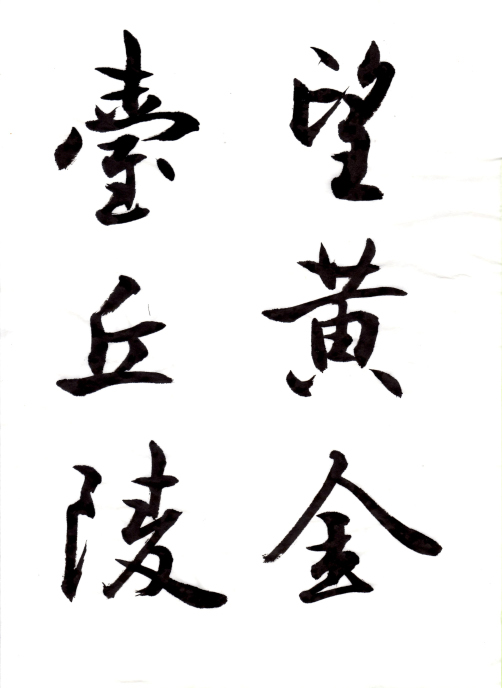 望黄金
臺丘陵